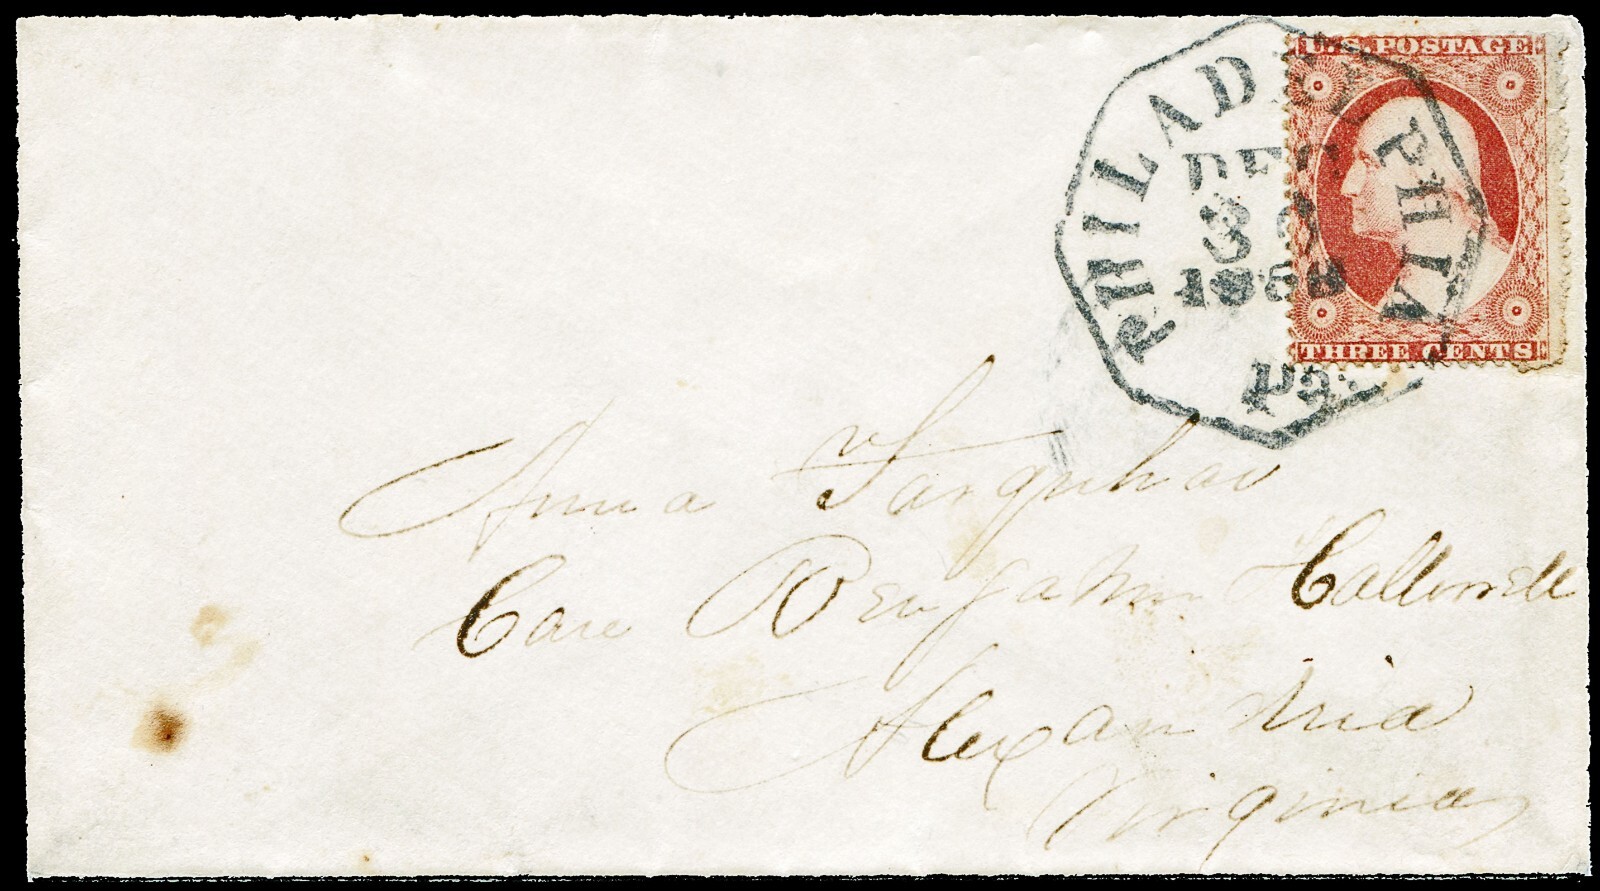 PHILADELPHIA
DEC
30
1858
Pa.
U.S. POSTAGE
THREE CENTS
Anna Farquhar
Care Benjamin Hallowell
Alexandria
Virginia